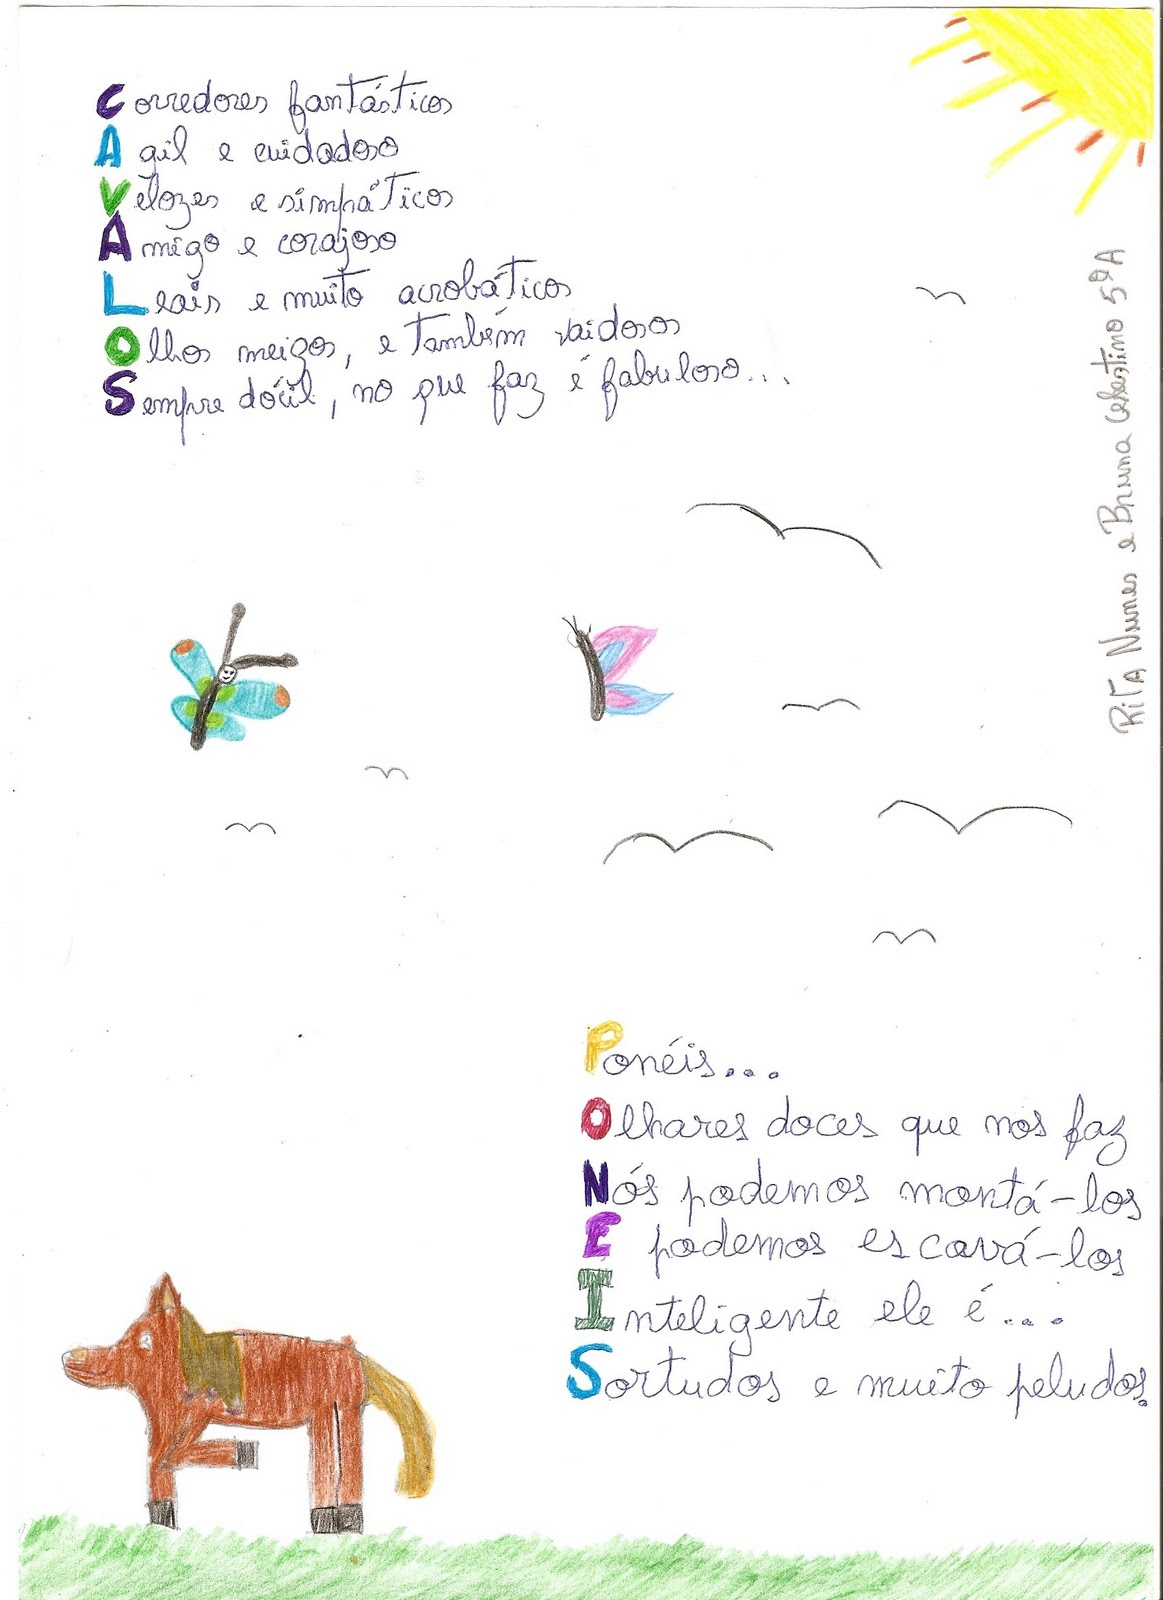 Corredores fantásticos
Agil e cuidadoso
Velozes e simpáticos
Amigo e corajoso
Leais e muito acrobáticos
Olhos meigos, e também vaidosos
Sempre dócil, no que faz é fabuloso...
Rita Nunes e Bruna Celestino 5ºA
Ponéis...
Olhares doces que nos faz
Nós podemos montá-los
E podemos escavá-los
Inteligente ele é....
Sortudos e muito peludos.